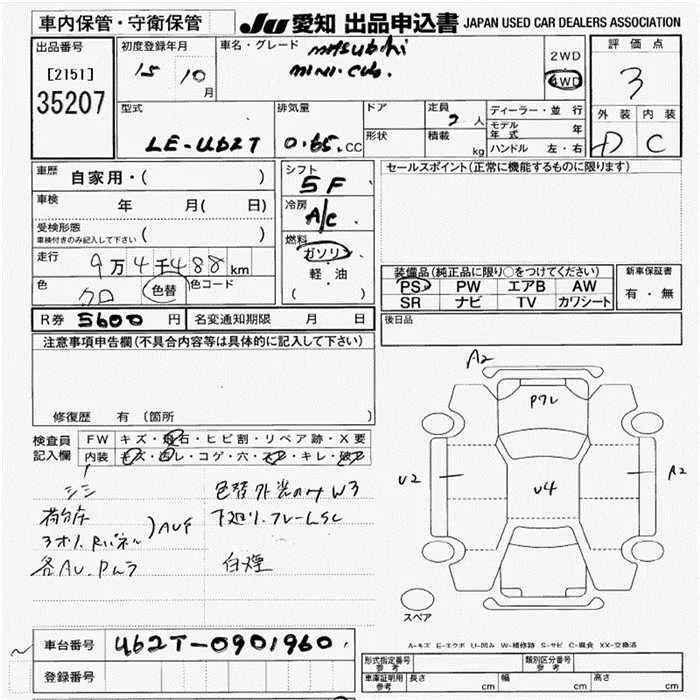 車内保管・守衛保管
JU 愛知 出品申込書 JAPAN USED CAR DEALERS ASSOCIATION
出品番号
[2151]
35207
初度登録年月
15 10
月
車名・グレード
mitsubishi
mini-cab.
2WD
4WD
評価点
3
外装 内装
D C
型式
LE-U62T
排気量
0.65.CC
ドア
形状
定員
2 人
積載
kg
ディーラー・並行
モデル年式 年
ハンドル 左・右
車歴 自家用・( )
車検 年 月( 日)
受検形態
車検付きのみ記入して下さい ( )
走行 9万4千488km
色 クロ 色替 色コード
シフト
5F
冷房
A/C
燃料
ガソリン
軽・油
( )
セールスポイント(正常に機能するものに限ります)
装備品(純正品に限り○をつけてください)
PS PW エアB AW
SR ナビ TV カワシート
新車保証書
有・無
R券 5600 円 名変通知期限 月 日
後日品
注意事項申告欄(不具合内容等は具体的に記入して下さい)
修復歴 有 (箇所 )
検査員
記入欄
FW キズ・飛石・ヒビ割・リペア跡・X要
内装 キズ・ヨゴレ・コゲ・穴・スレ・キレ・破レ
色替外光のみW3
下廻り.フレームSC
白煙
A2
U2
U4
A2
スペア
A-キズ E-エクボ U-凹み W-補修跡 S-サビ C-腐食 XX-交換済
車台番号 U62T-0901960
登録番号
形式指定番号
参考
類別区分番号
参考
車庫証明用
参考
長さ cm
幅 cm
高さ cm